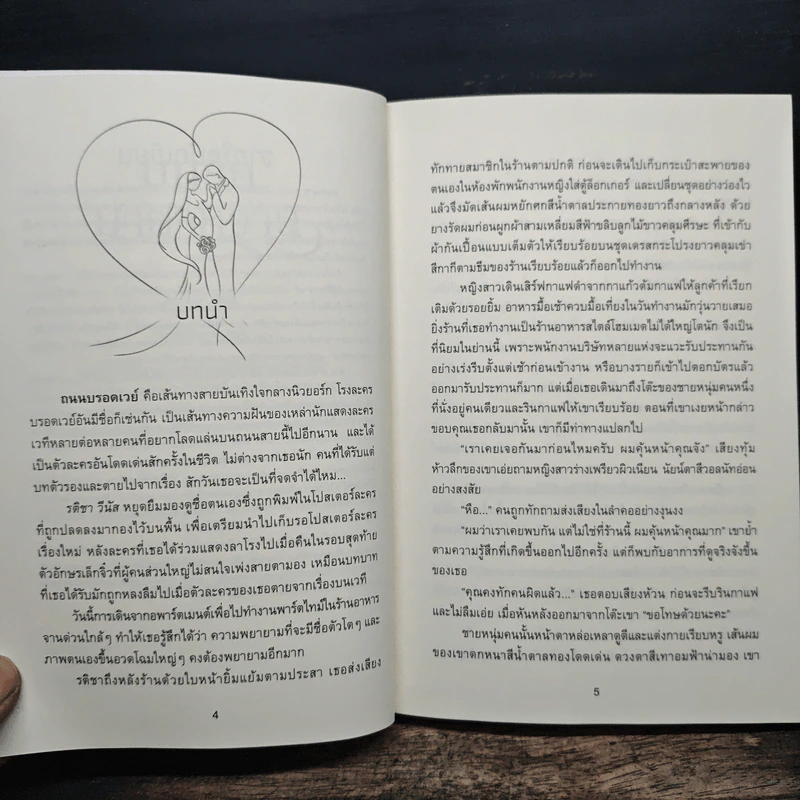 บทนำ
ถนนบรอดเวย์ คือเส้นทางสายบันเทิงใจกลางนิวยอร์ก โรงละคร
บรอดเวย์อันมีชื่อก็เช่นกัน เป็นเส้นทางความฝันของเหล่านักแสดงละคร
เวทีหลายต่อหลายคนที่อยากโลดแล่นบนถนนสายนี้ไปอีกนาน และได้
เป็นตัวละครอันโดดเด่นสักครั้งในชีวิต ไม่ต่างจากเธอนัก คนที่ได้รับแต่
บทตัวรองและตายไปจากเรื่อง สักวันเธอจะเป็นที่จดจำได้ไหม...
รติชา วีนัส หยุดยิ้มมองดูชื่อตนเองซึ่งถูกพิมพ์ในโปสเตอร์ละคร
ที่ถูกปลดลงมากองไว้บนพื้น เพื่อเตรียมนำไปเก็บรอโปสเตอร์ละคร
เรื่องใหม่ หลังละครที่เธอได้ร่วมแสดงลาโรงไปเมื่อคืนในรอบสุดท้าย
ตัวอักษรเล็กจิ๋วที่ผู้คนส่วนใหญ่ไม่สนใจเพ่งสายตามอง เหมือนบทบาท
ที่เธอได้รับมักถูกหลงลืมไปเมื่อตัวละครของเธอตายจากเรื่องบนเวที
วันนี้การเดินจากอพาร์ตเมนต์เพื่อไปทำงานพาร์ตไทม์ในร้านอาหาร
จานด่วนใกล้ๆ ทำให้เธอรู้สึกได้ว่า ความพยายามที่จะมีชื่อตัวโตๆ และ
ภาพตนเองขึ้นอวดโฉมใหญ่ๆ คงต้องพยายามอีกมาก
รติชาถึงหลังร้านด้วยใบหน้ายิ้มแย้มตามประสา เธอส่งเสียง
4
ทักทายสมาชิกในร้านตามปกติ ก่อนจะเดินไปเก็บกระเป๋าสะพายของ
ตนเองในห้องพักพนักงานหญิงใส่ตู้ล็อกเกอร์ และเปลี่ยนชุดอย่างว่องไว
แล้วจึงมัดเส้นผมหยักศกสีน้ำตาลประกายทองยาวถึงกลางหลัง ด้วย
ยางรัดผมก่อนผูกผ้าสามเหลี่ยมสีฟ้าขลิบลูกไม้ขาวคลุมศีรษะ ที่เข้ากับ
ผ้ากันเปื้อนแบบเต็มตัวให้เรียบร้อยบนชุดเดรสกระโปรงยาวคลุมเข่า
สีกาก็ตามธีมของร้านเรียบร้อยแล้วก็ออกไปทำงาน
หญิงสาวเดินเสิร์ฟกาแฟดำจากกาแก้วต้มกาแฟให้ลูกค้าที่เรียก
เติมด้วยรอยยิ้ม อาหารมื้อเช้าควบมื้อเที่ยงในวันทำงานมักวุ่นวายเสมอ
ยิ่งร้านที่เธอทำงานเป็นร้านอาหารสไตล์โฮมเมดไม่ได้ใหญ่โตนัก จึงเป็น
ที่นิยมในย่านนี้ เพราะพนักงานบริษัทหลายแห่งจะแวะรับประทานกัน
อย่างเร่งรีบตั้งแต่เช้าก่อนเข้างาน หรือบางรายก็เข้าไปตอกบัตรแล้ว
ออกมารับประทานก็มาก แต่เมื่อเธอเดินมาถึงโต๊ะของชายหนุ่มคนหนึ่ง
ที่นั่งอยู่คนเดียวและรินกาแฟให้เขาเรียบร้อย ตอนที่เขาเงยหน้ากล่าว
ขอบคุณเธอกลับมานั้น เขาก็มีท่าทางแปลกไป
“เราเคยเจอกันมาก่อนไหมครับ ผมคุ้นหน้าคุณจัง” เสียงทุ้ม
ห้าวลึกของเขาเอ่ยถามหญิงสาวร่างเพรียวผิวเนียน นัยน์ตาสีวอลนัทอ่อน
อย่างสงสัย
“หือ...” คนถูกทักถามส่งเสียงในลำคออย่างงุนงง
“ผมว่าเราเคยพบกัน แต่ไม่ใช่ที่ร้านนี้ ผมคุ้นหน้าคุณมาก” เขาย้ำ
ตามความรู้สึกที่เกิดขึ้นออกไปอีกครั้ง แต่ก็พบกับอาการที่ดูจริงจังขึ้น
ของเธอ
“คุณคงทักคนผิดแล้ว...” เธอตอบเสียงห้วน ก่อนจะรีบรินกาแฟ
และไม่ลืมเอ่ย เมื่อหันหลังออกมาจากโต๊ะเขา “ขอโทษด้วยนะคะ”
ชายหนุ่มคนนั้นหน้าตาหล่อเหลาดูดีและแต่งกายเรียบหรู เส้นผม
ของเขาดกหนาสีน้ำตาลทองโดดเด่น ดวงตาสีเทาอมฟ้าน่ามอง เขา
5